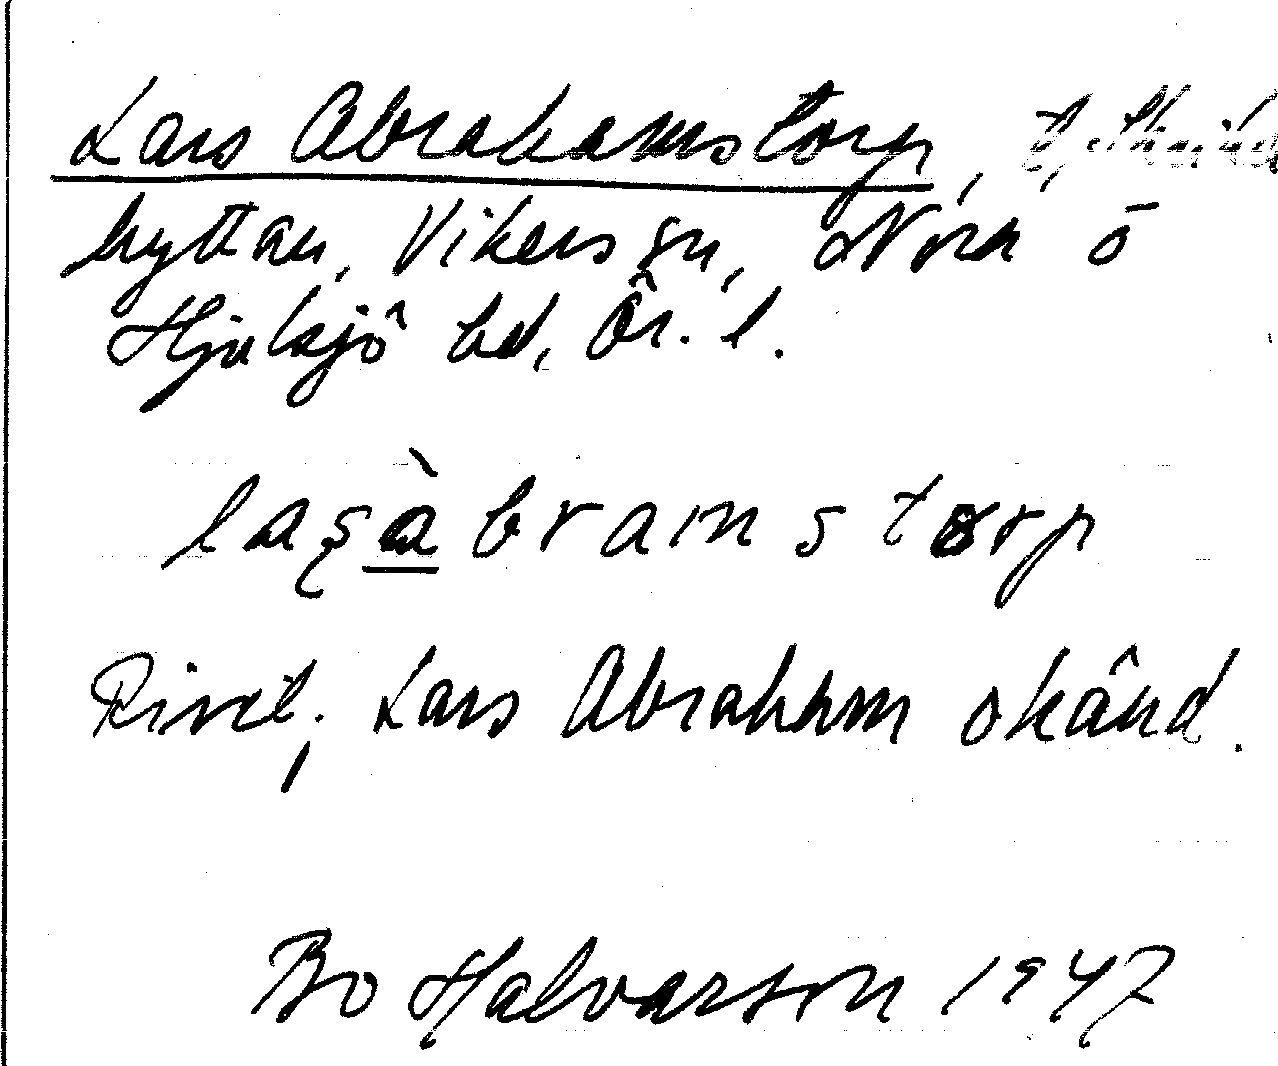 Lars Abrahamstorp, t.
hyttan, Vikers sn, Nora ō
Hjulsjö bd, Ör. l.
lasàbramstorp
Rivet, Lars Abraham okänd.
Bo Halvarson 1947